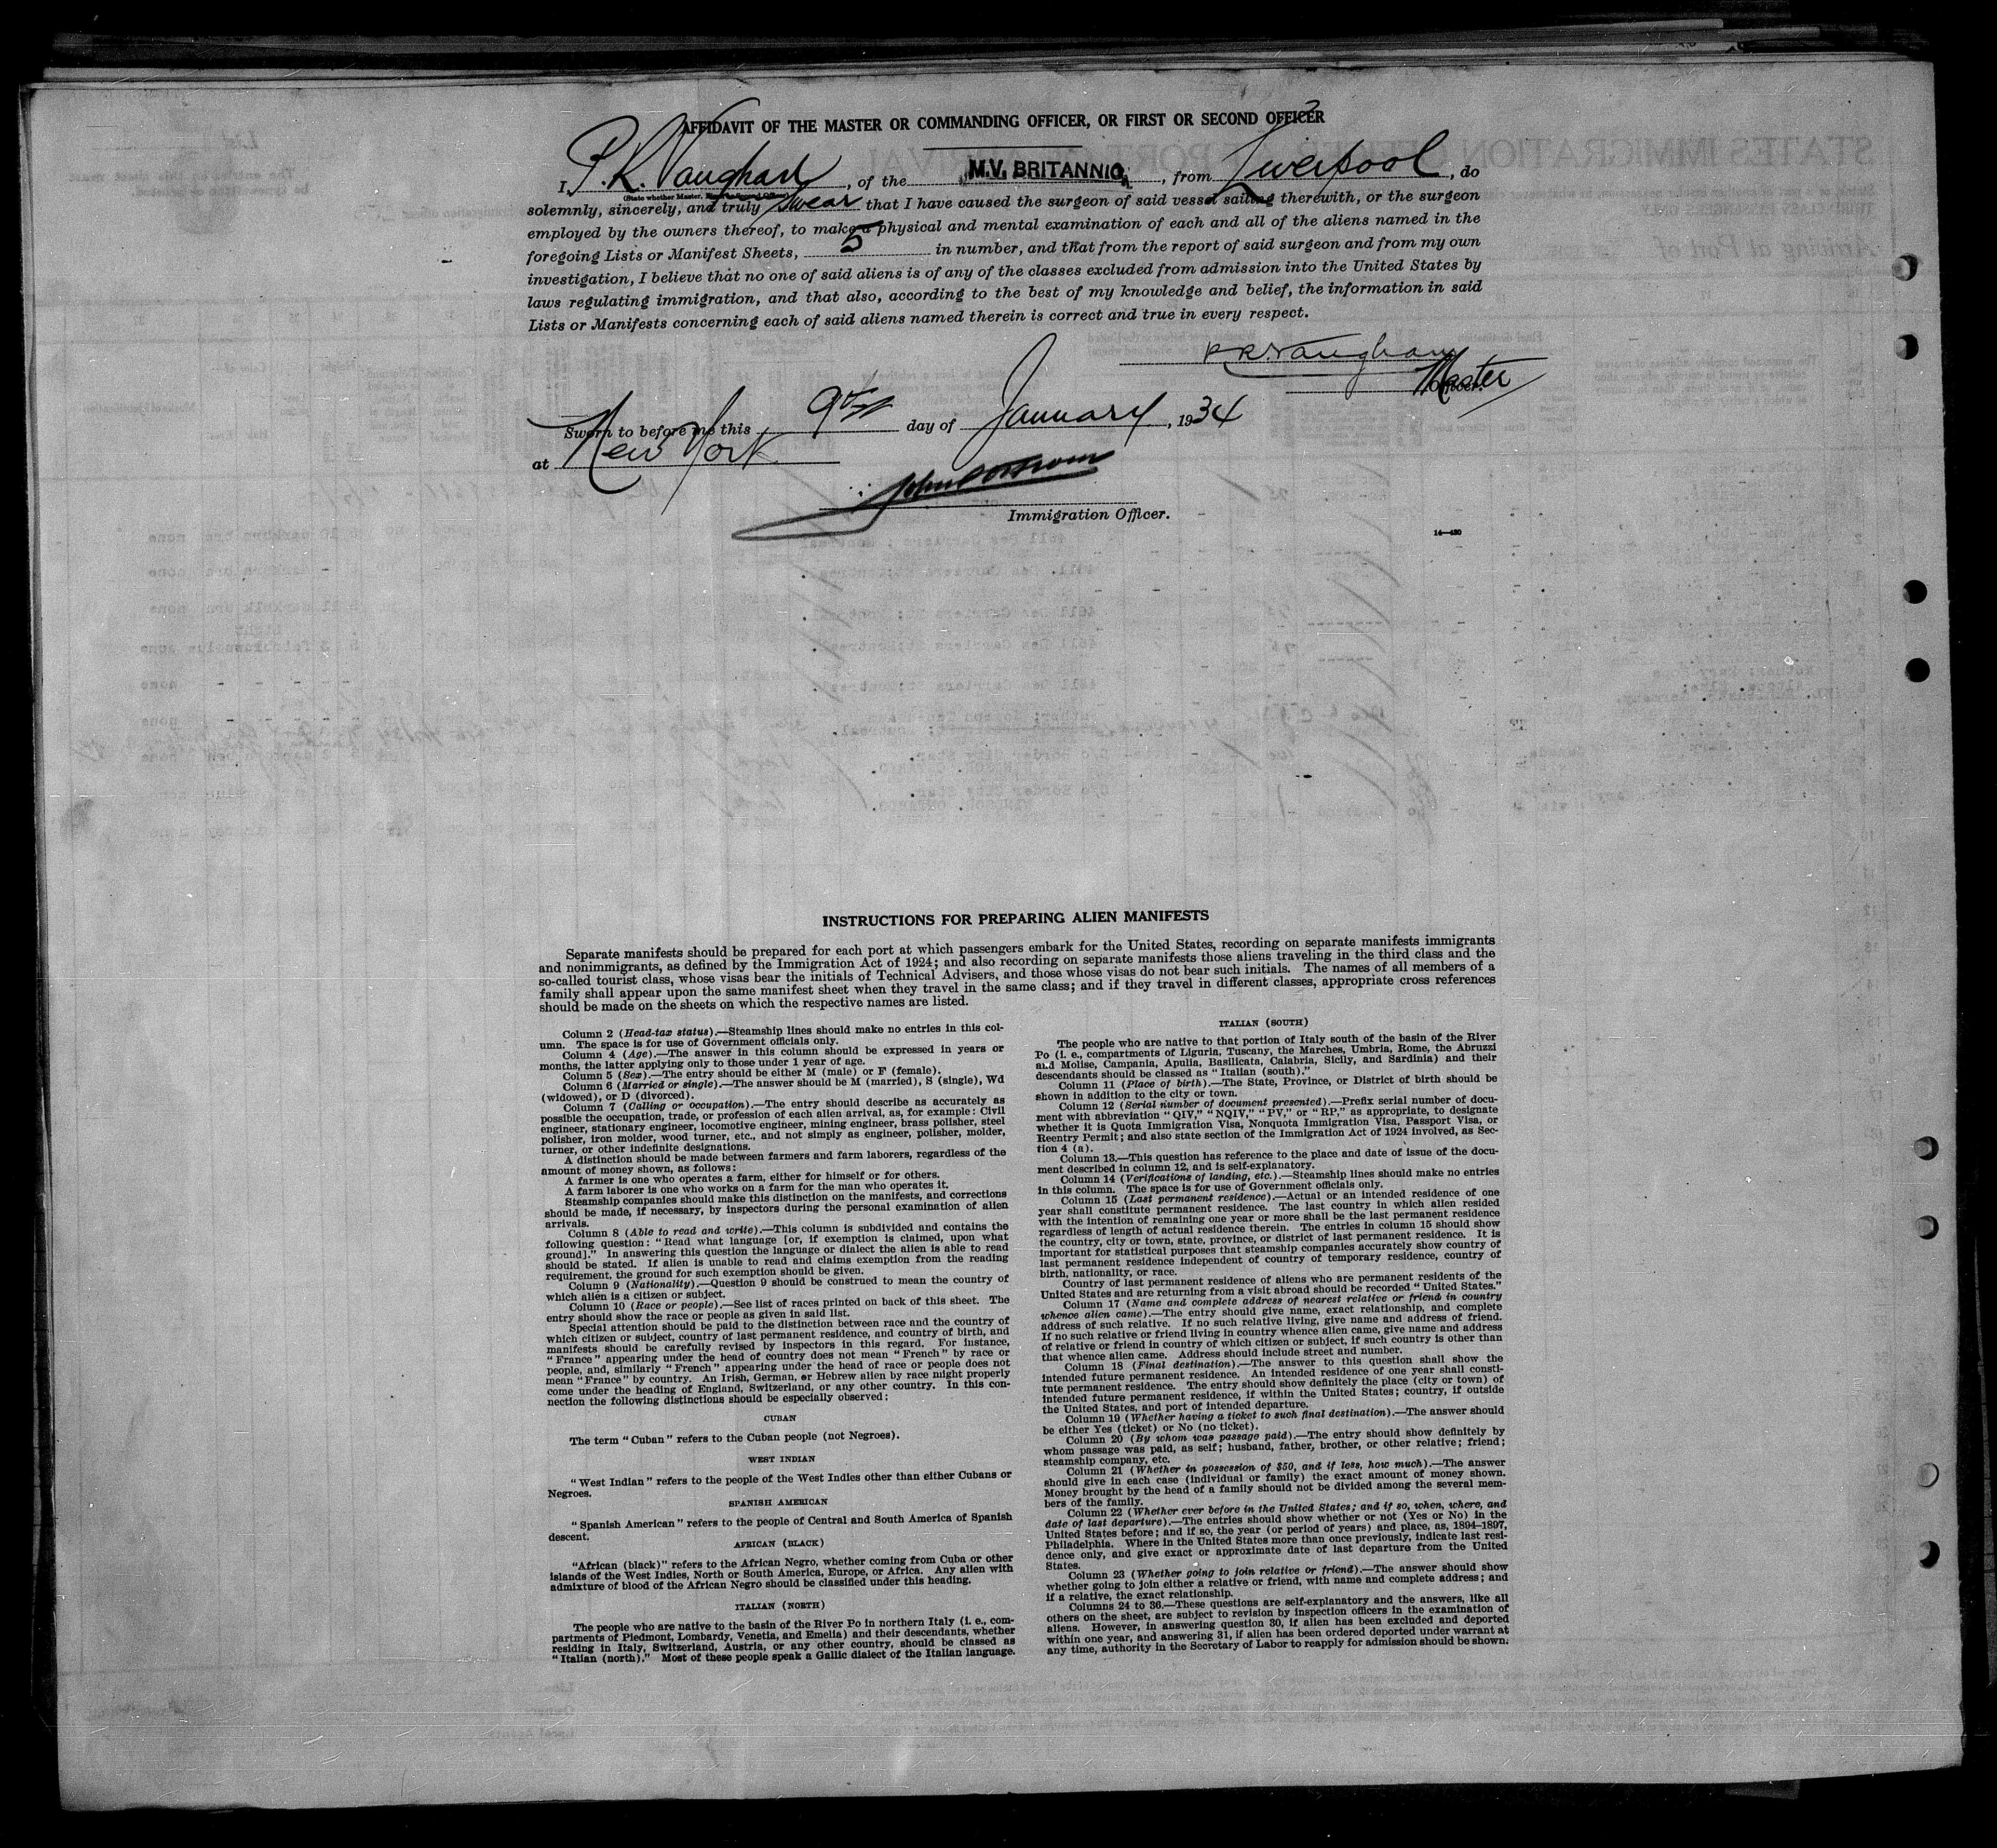 AFFIDAVIT OF THE MASTER OR COMMANDING OFFICER, OR FIRST OR SECOND OFFICER
I, P. R. Vaughan, of the M.V. BRITANNIC, from Liverpool, do
(State whether Master,
solemnly, sincerely, and truly swear that I have caused the surgeon of said vessel sailing therewith, or the surgeon
employed by the owners thereof, to make a physical and mental examination of each and all of the aliens named in the
foregoing Lists or Manifest Sheets, 5 in number, and that from the report of said surgeon and from my own
investigation, I believe that no one of said aliens is of any of the classes excluded from admission into the United States by
laws regulating immigration, and that also, according to the best of my knowledge and belief, the information in said
Lists or Manifests concerning each of said aliens named therein is correct and true in every respect.
P R Vaughan
Master
Officer.
Sworn to before me this 9th day of January, 1934
at New York
Immigration Officer.
14—420
INSTRUCTIONS FOR PREPARING ALIEN MANIFESTS
Separate manifests should be prepared for each port at which passengers embark for the United States, recording on separate manifests immigrants
and nonimmigrants, as defined by the Immigration Act of 1924; and also recording on separate manifests those aliens traveling in the third class and the
so-called tourist class, whose visas bear the initials of Technical Advisers, and those whose visas do not bear such initials. The names of all members of a
family shall appear upon the same manifest sheet when they travel in the same class; and if they travel in different classes, appropriate cross references
should be made on the sheets on which the respective names are listed.
Column 2 (Head-tax status).—Steamship lines should make no entries in this col-
umn. The space is for use of Government officials only.
Column 4 (Age).—The answer in this column should be expressed in years or
months, the latter applying only to those under 1 year of age.
Column 5 (Sex).—The entry should be either M (male) or F (female).
Column 6 (Married or single).—The answer should be M (married), S (single), Wd
(widowed), or D (divorced).
Column 7 (Calling or occupation).—The entry should describe as accurately as
possible the occupation, trade, or profession of each alien arrival, as, for example: Civil
engineer, stationary engineer, locomotive engineer, mining engineer, brass polisher, steel
polisher, iron molder, wood turner, etc., and not simply as engineer, polisher, molder,
turner, or other indefinite designations.
A distinction should be made between farmers and farm laborers, regardless of the
amount of money shown, as follows:
A farmer is one who operates a farm, either for himself or for others.
A farm laborer is one who works on a farm for the man who operates it.
Steamship companies should make this distinction on the manifests, and corrections
should be made, if necessary, by inspectors during the personal examination of alien
arrivals.
Column 8 (Able to read and write).—This column is subdivided and contains the
following question: "Read what language [or, if exemption is claimed, upon what
ground]." In answering this question the language or dialect the alien is able to read
should be stated. If alien is unable to read and claims exemption from the reading
requirement, the ground for such exemption should be given.
Column 9 (Nationality).—Question 9 should be construed to mean the country of
which alien is a citizen or subject.
Column 10 (Race or people).—See list of races printed on back of this sheet. The
entry should show the race or people as given in said list.
Special attention should be paid to the distinction between race and the country of
which citizen or subject, country of last permanent residence, and country of birth, and
manifests should be carefully revised by inspectors in this regard. For instance,
"France" appearing under the head of country does not mean "French" by race or
people, and, similarly "French" appearing under the head of race or people does not
mean "France" by country. An Irish, German, or Hebrew alien by race might properly
come under the heading of England, Switzerland, or any other country. In this con-
nection the following distinctions should be especially observed:
CUBAN
The term "Cuban" refers to the Cuban people (not Negroes).
WEST INDIAN
"West Indian" refers to the people of the West Indies other than either Cubans or
Negroes.
SPANISH AMERICAN
"Spanish American" refers to the people of Central and South America of Spanish
descent.
AFRICAN (BLACK)
"African (black)" refers to the African Negro, whether coming from Cuba or other
islands of the West Indies, North or South America, Europe, or Africa. Any alien with
admixture of blood of the African Negro should be classified under this heading.
ITALIAN (NORTH)
The people who are native to the basin of the River Po in northern Italy (i. e., com-
partments of Piedmont, Lombardy, Venetia, and Emelia) and their descendants, whether
residing in Italy, Switzerland, Austria, or any other country, should be classed as
"Italian (north)." Most of these people speak a Gallic dialect of the Italian language.
ITALIAN (SOUTH)
The people who are native to that portion of Italy south of the basin of the River
Po (i. e., compartments of Liguria, Tuscany, the Marches, Umbria, Rome, the Abruzzi
and Molise, Campania, Apulia, Basilicata, Calabria, Sicily, and Sardinia) and their
descendants should be classed as "Italian (south)."
Column 11 (Place of birth).—The State, Province, or District of birth should be
shown in addition to the city or town.
Column 12 (Serial number of document presented).—Prefix serial number of docu-
ment with abbreviation "QIV," "NQIV," "PV," or "RP," as appropriate, to designate
whether it is Quota Immigration Visa, Nonquota Immigration Visa, Passport Visa, or
Reentry Permit; and also state section of the Immigration Act of 1924 involved, as Sec-
tion 4 (a).
Column 13.—This question has reference to the place and date of issue of the docu-
ment described in column 12, and is self-explanatory.
Column 14 (Verifications of landing, etc.).—Steamship lines should make no entries
in this column. The space is for use of Government officials only.
Column 15 (Last permanent residence).—Actual or an intended residence of one
year shall constitute permanent residence. The last country in which alien resided
with the intention of remaining one year or more shall be the last permanent residence
regardless of length of actual residence therein. The entries in column 15 should show
the country, city or town, state, province, or district of last permanent residence. It is
important for statistical purposes that steamship companies accurately show country of
last permanent residence independent of country of temporary residence, country of
birth, nationality, or race.
Country of last permanent residence of aliens who are permanent residents of the
United States and are returning from a visit abroad should be recorded "United States."
Column 17 (Name and complete address of nearest relative or friend in country
whence alien came).—The entry should give name, exact relationship, and complete
address of such relative. If no such relative living, give name and address of friend.
If no such relative or friend living in country whence alien came, give name and address
of relative or friend in country of which citizen or subject, if such country is other than
that whence alien came. Address should include street and number.
Column 18 (Final destination).—The answer to this question shall show the
intended future permanent residence. An intended residence of one year shall consti-
tute permanent residence. The entry should show definitely the place (city or town) of
intended future permanent residence, if within the United States; country, if outside
the United States, and port of intended departure.
Column 19 (Whether having a ticket to such final destination).—The answer should
be either Yes (ticket) or No (no ticket).
Column 20 (By whom was passage paid).—The entry should show definitely by
whom passage was paid, as self; husband, father, brother, or other relative; friend;
steamship company, etc.
Column 21 (Whether in possession of $50, and if less, how much).—The answer
should give in each case (individual or family) the exact amount of money shown.
Money brought by the head of a family should not be divided among the several mem-
bers of the family.
Column 22 (Whether ever before in the United States; and if so, when, where, and
date of last departure).—The entries should show whether or not (Yes or No) in the
United States before; and if so, the year (or period of years) and place, as, 1894–1897,
Philadelphia. Where in the United States more than once previously, indicate last resi-
dence only, and give exact or approximate date of last departure from the United
States.
Column 23 (Whether going to join relative or friend).—The answer should show
whether going to join either a relative or friend, with name and complete address; and
if a relative, the exact relationship.
Columns 24 to 36.—These questions are self-explanatory and the answers, like all
others on the sheet, are subject to revision by inspection officers in the examination of
aliens. However, in answering question 30, if alien has been excluded and deported
within one year, and answering 31, if alien has been ordered deported under warrant at
any time, authority in the Secretary of Labor to reapply for admission should be shown.